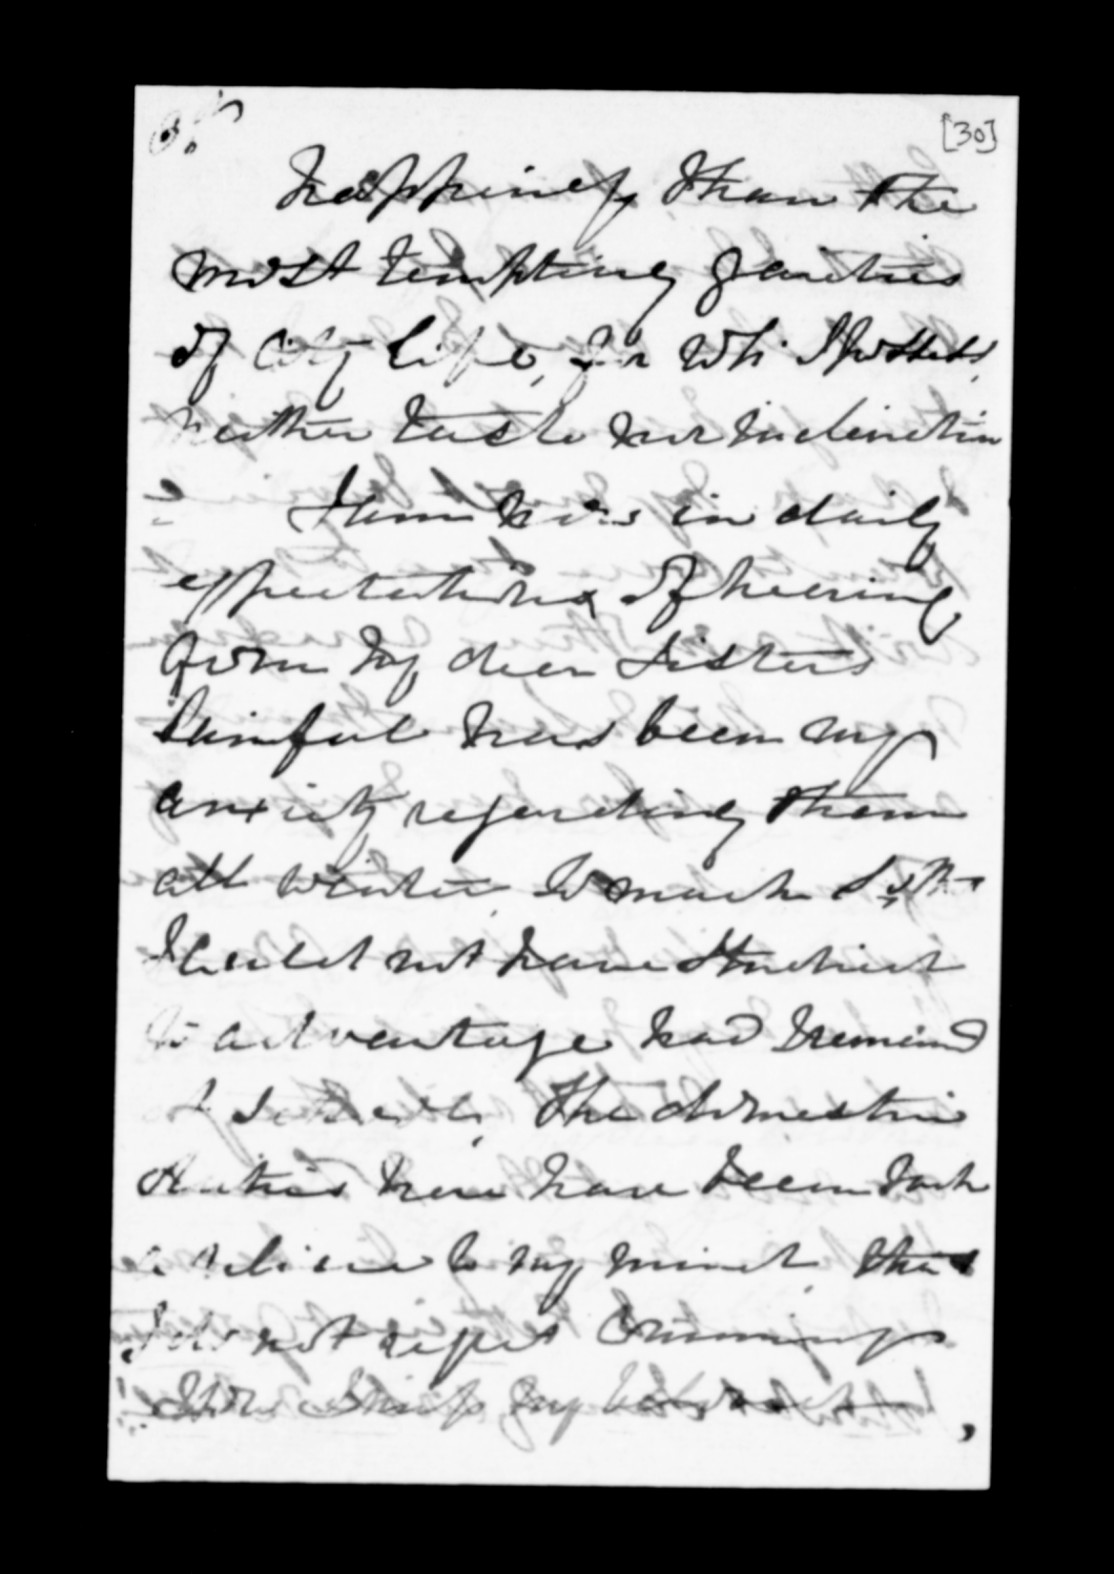 [30]
happiness than the
most tempting gaieties
of City life, for wh: I possess
neither taste nor inclination
I am now in daily
expectations of hearing
from my dear Sisters
Painful has been my
anxiety regarding them
all winter so much so th
I could not have studied
to advantage had I remained
The domestic
duties here have been such
a relief to my mind that
I do not regret Coming
How I miss my